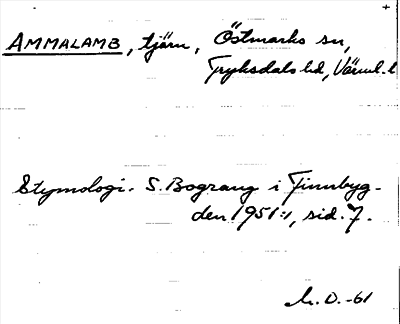 AMMALAMB, tjärn, Östmarks sn,
Fryksdals hd, Värml. l
Etymologi. S. Bograng i Finnbyg-
den 1951:1, sid. 7.
D. -61